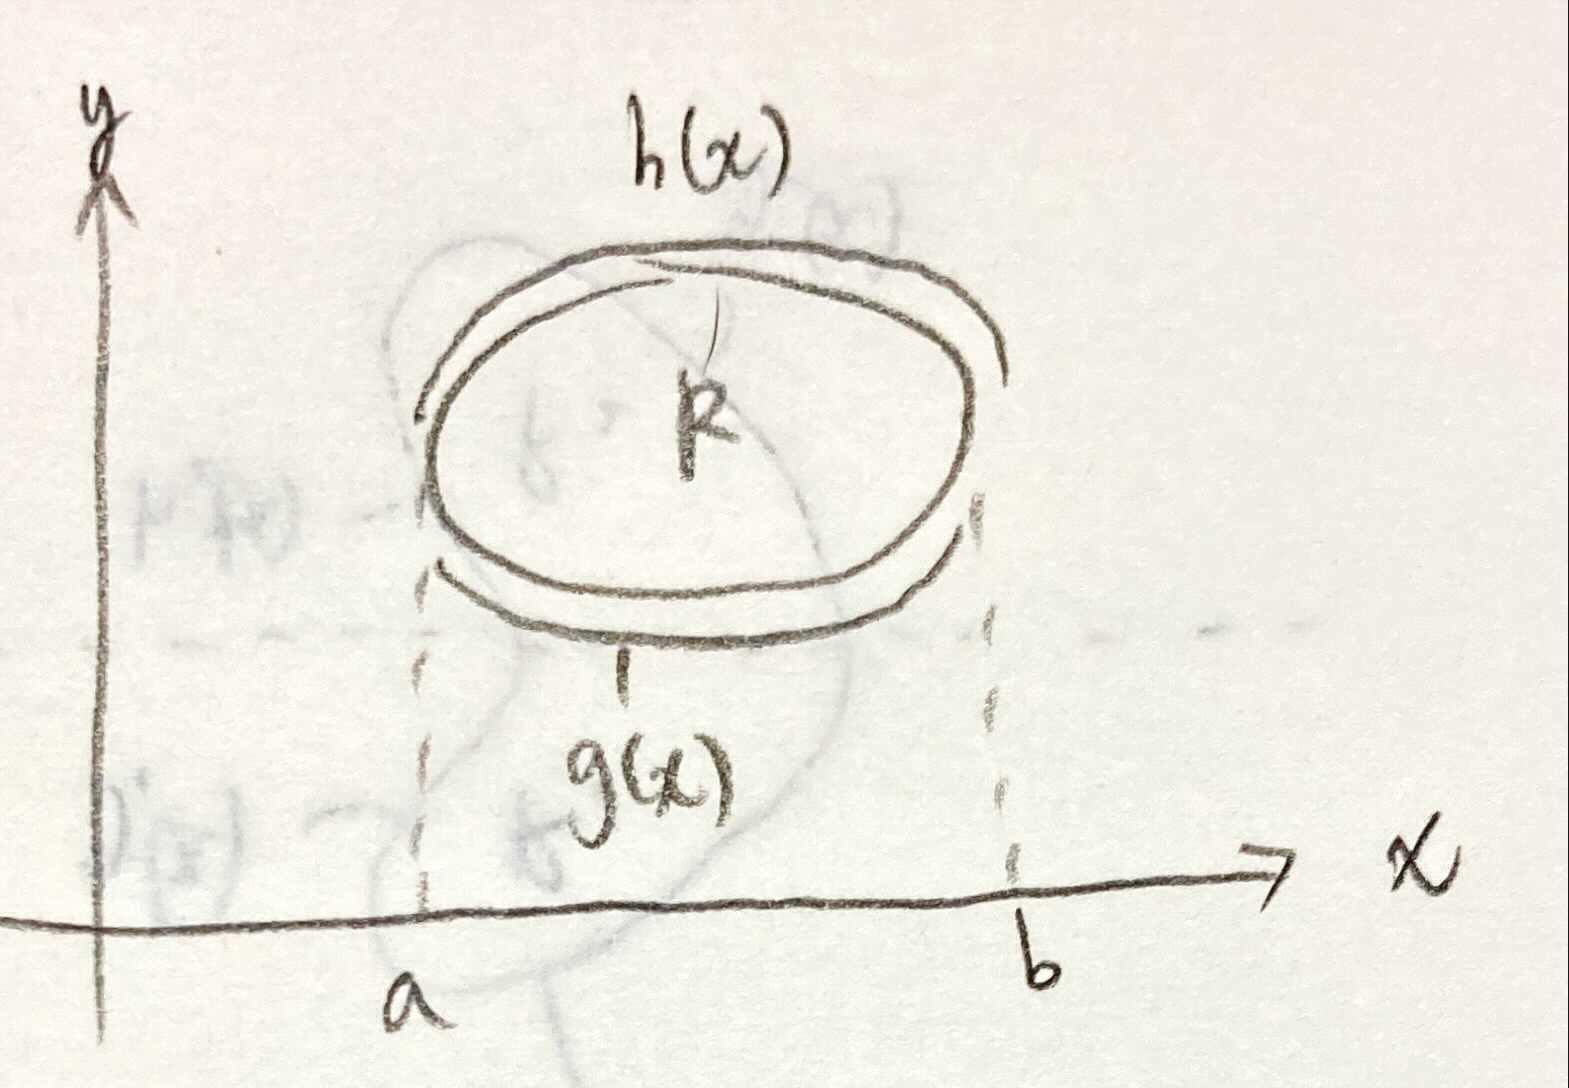 y
h(x)
R
g(x)
x
a
b